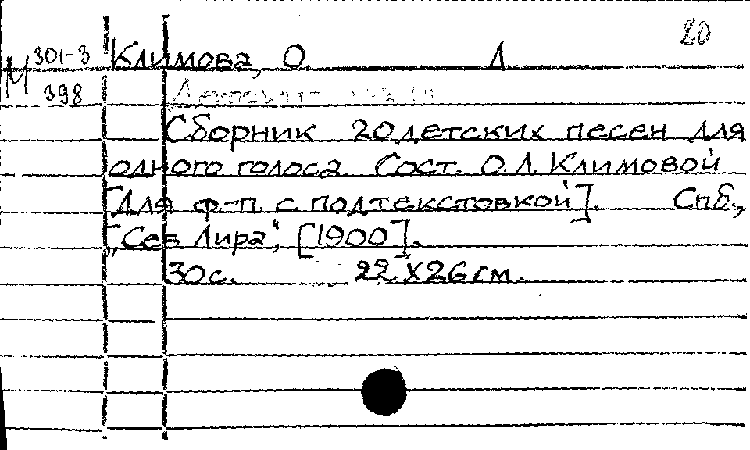 20
М 301-3
398
Климова, О. Л
Сборник 20 детских песен для
одного голоса. Сост. О.Л. Климовой
[Для ф-п. с подтекстовкой]. Спб.,
„Сев Лира", [1900].
30с. 22 X 26 см.